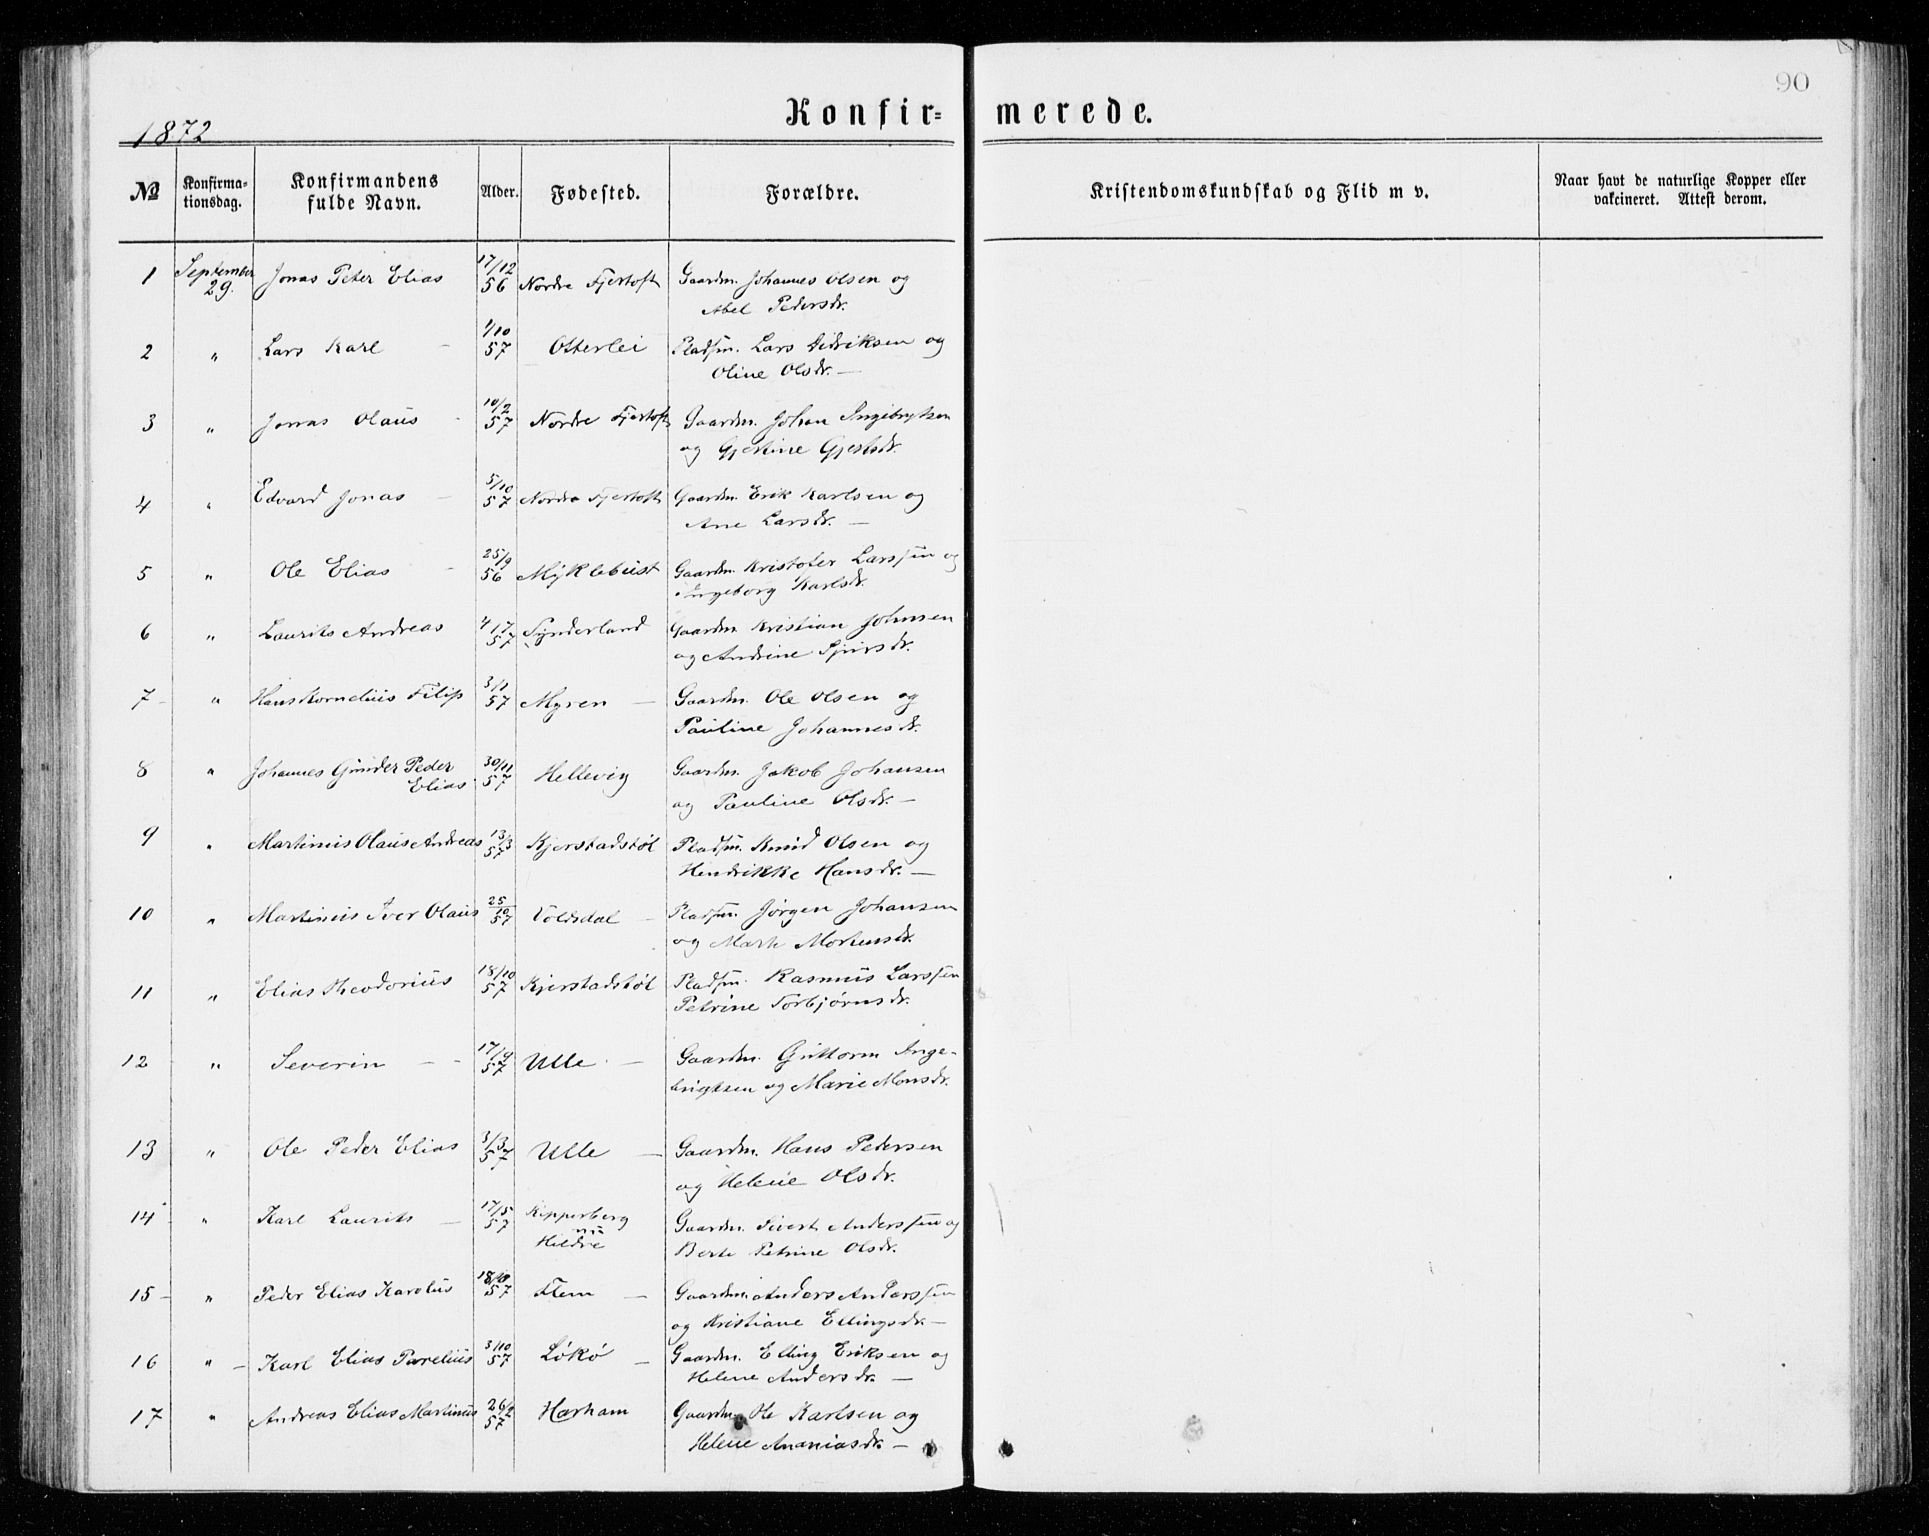 90
Konfir= merede.
1872
No Konfirma-tionsdag. Konfirmandens fulde Navn. Alder. Fødested. Forældre. Kristendomskundskab og Flid m v. Naar havt de naturlige Kopper eller vakcineret. Attest derom.
1 September 29. Jonas Peter Elias 17/12 56 Nordre Fjertoft Gaardm. Johannes Olsen og
Abel Pedersdr.
2 " Lars Karl – 1/10 57 Otterlei Pladsm. Lars Didriksen og
Oline Olsdr. –
3 " Jonas Olaus – 10/2 57 Nordre Fjertoft Gaardm. Johan Ingebrigtsen
og Gjertine Gjertsdr.
4 " Edvard Jonas – 5/10 57 Nordre Fjertoft Gaardm. Erik Karlsen og
Ane Larsdr. –
5 " Ole Elias – 25/9 56 Myklebust Gaardm. Kristofer Larssen og
Ingeborg Karlsdr.
6 " Laurits Andreas 4/7 57 Synderland Gaardm. Kristian Johnsen
og Andrine Sjursdr.
7 – " Hans Kornelius Filip 3/1 57 Myren – Gaardm. Ole Olsen og
Pauline Johannesdr.
8 " Johannes Gunder Peder
Elias 30/11 57 Hellevig Gaardm. Jakob Johansen
og Pauline Olsdr. –
9 " Martinus Olaus Andreas 13/3 57 Kjerstadstøl Pladsm. Knud Olsen og
Hendrikke Hansdr. –
10 " Martinus Iver Olaus 25/10 57 Voldsdal – Pladsm. Jørgen Johansen
og Marte Mortensdr.
11 " Elias Theodorius 18/10 57 Kjerstadstøl Pladsm. Rasmus Larssen
Petrine Torbjørnsdr.
12 " Severin – – 17/9 57 Ulle – Gaardm. Guttorm Inge-
brigtsen og Marie Monsdr.
13 " Ole Peder Elias 3/3 57 Ulle – Gaardm. Hans Pedersen
og Helene Olsdr.
14 " Karl Laurits – 17/5 57 Kipperberg
nu
Hildre Gaardm. Sivert Anderssen og
Berte Petrine Olsdr.
15 – " Peder Elias Karolus 57 Flem – Gaardm. Anders Anderssen
og Kristiane Ellingsdr. –
16 " – Karl Elias Parelius 3/10 57 Løkø – Gaardm. Elling Eriksen og
Helene Andersdr. –
17 " Andreas Elias Martinus 26/2 57 Harham Gaardm. Ole Karlsen og
Helene Ananiasdr. –